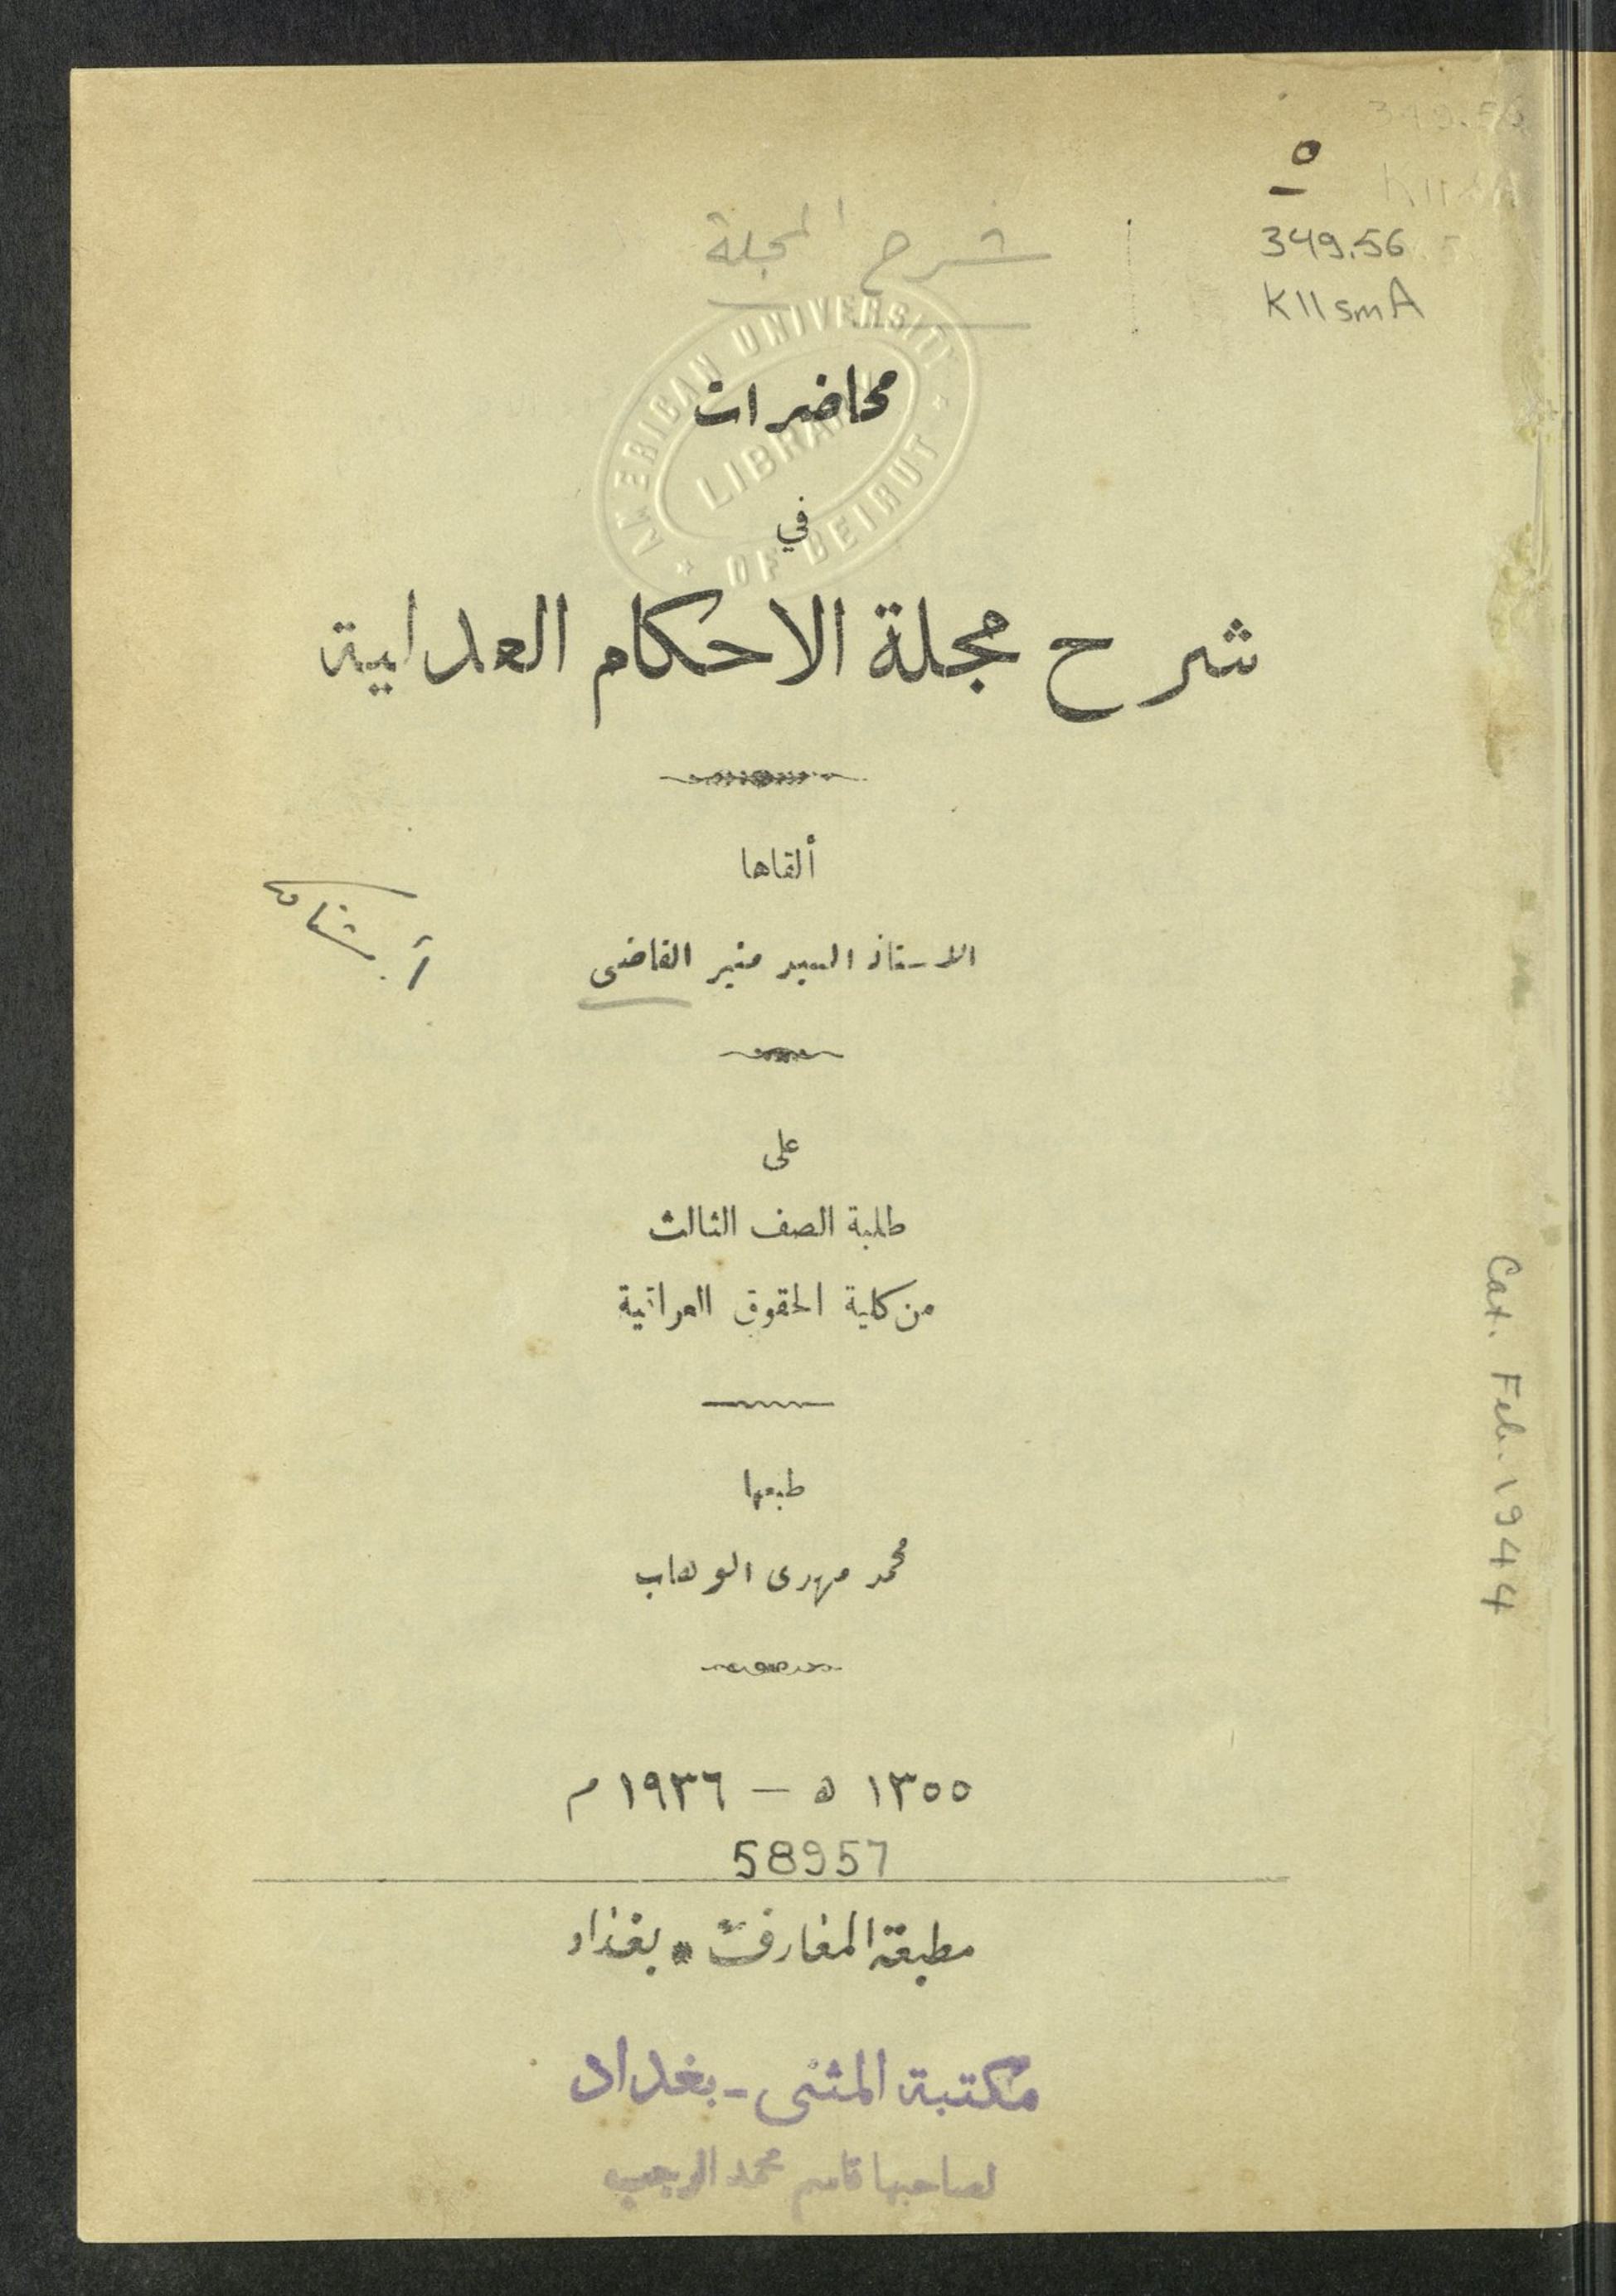 349.56
K11smA
شرح المجلة
AMERICAN UNIVERSITY
LIBRARY
OF BEIRUT
محاضرات
في
شرح مجلة الاحكام العدلية
ألقاها
الاستاذ السيد منير القاضى
على
طلبة الصف الثالث
من كلية الحقوق العراقية
طبعها
محمد مهدى الوهاب
١٣٥٥ ه – ١٩٣٦ م
58957
مطبعة المعارف * بغداد
مكتبة المثنى - بغداد
لصاحبها قاسم محمد الرجب
Cat. Feb. 1944